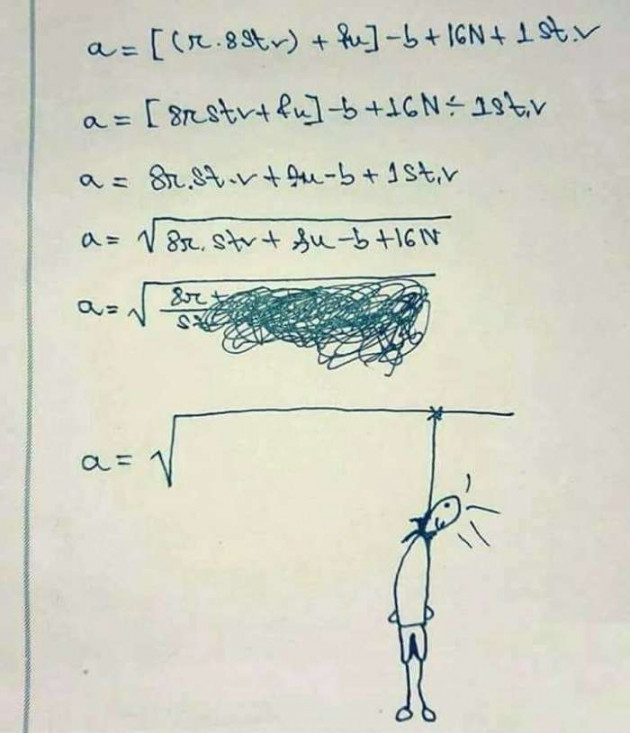 a = [(r.8St v) + fu] - b + 16N + 1 st.v
a = [8rstv + fu] - b + 16N ÷ 1st,v
a = 8r.st.v + fu - b + 1st,v
a = √8r.stv + fu - b + 16N
a = √8r +
a = √